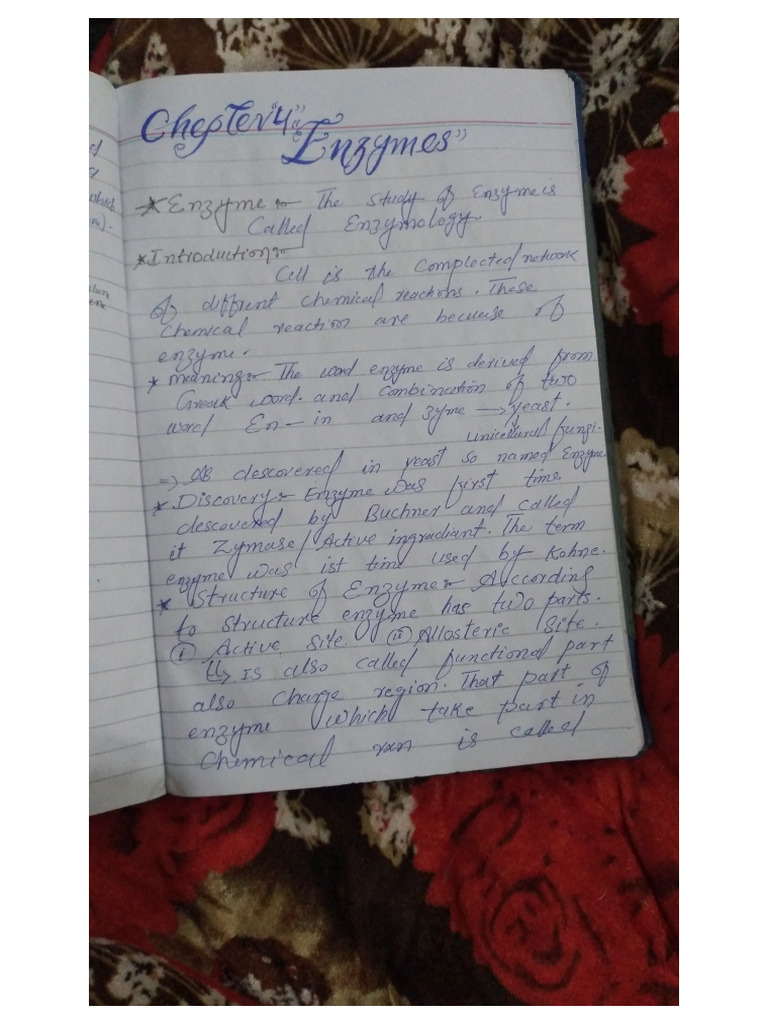 Chepter "4"
"Enzymes"
* Enzyme :- The study of Enzyme is
Called Enzymology.
* Introduction :-
Cell is the Complected network
of diffrent chemical reactions. These
chemical reaction are becuese of
enzyme.
* meaning :- The word enzyme is derived from
Greak word. and Combination of two
word En - in and zyme → yeast.
unicellural fungi.
⇒ descovered in yeast so named Enzyme.
* Discovery :- Enzyme was first time
descovered by Buchner and called
it Zymase / Active ingradiant. The term
enzyme was ist time used by Kohne.
* Structure of Enzyme :- According
to structure enzyme has two parts.
(i) Active site. (ii) Allosteric site.
↳ is also called functional part
also Charge region. That part of
enzyme which take part in
Chemical rxn is called